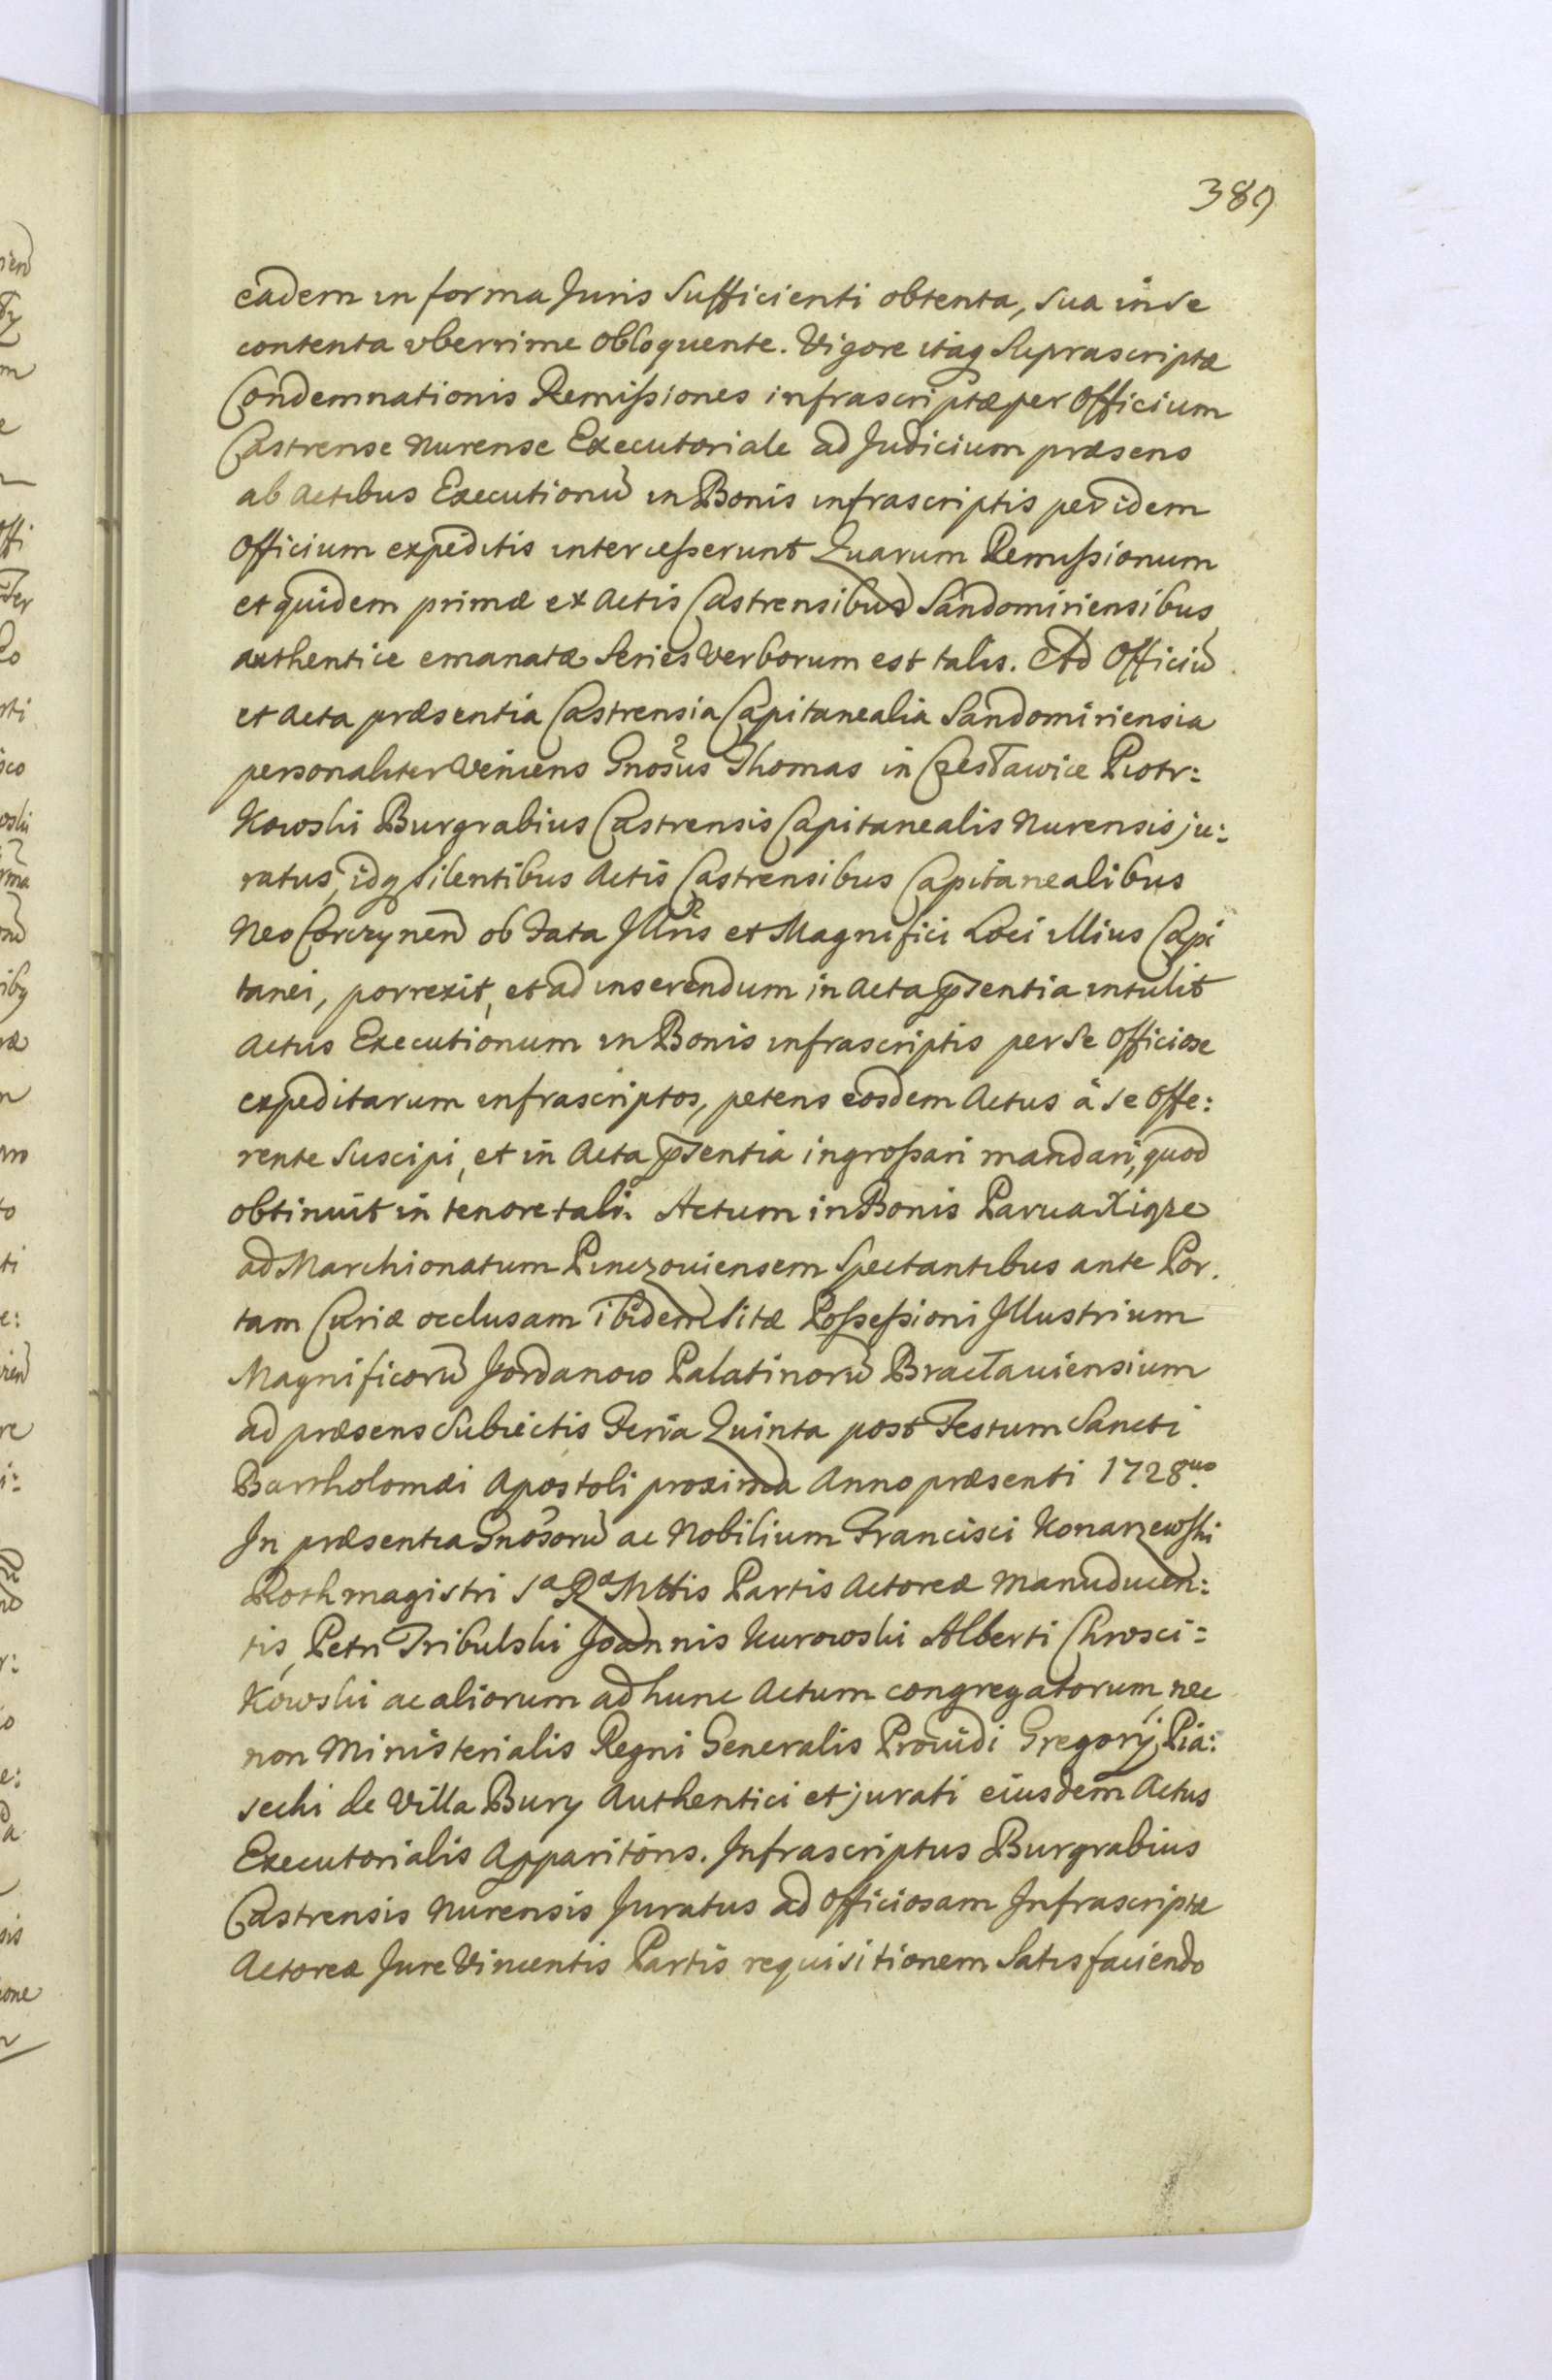 389
eadem in forma Juris Sufficienti obtenta, sua in se
contenta vberrime obloquente. Vigore itaq Suprascriptæ
Condemnationis Remissiones infrascriptæ per Officium
Castrense Nurense Executoriale ad Judicium præsens
ab Actibus Executionū in Bonis infrascriptis per idem
Officium expeditis intercesserunt Quarum Remissionum
et quidem primæ ex Actis Castrensibus Sandomiriensibus
authentice emanatæ Series Verborum est talis. Ad Officiū
et Acta præsentia Castrensia Capitanealia Sandomiriensia
personaliter Veniens Gnosus Thomas in Czesławice Piotr:
Kowski Burgrabius Castrensis Capitanealis Nurensis ju:
ratus, idq silentibus Actis Castrensibus Capitanealibus
Neo Corczynen ob Fata Jllris et Magnifici Loci illius Capi
tanei, porrexit, et ad inserendum in Acta pntia intulit
Actus Executionum in Bonis infrascriptis per Se Officiose
expeditarum infrascriptos, petens eosdem Actus à se Offe:
rente Suscipi, et in Acta pntia ingrossari mandari, quod
obtinuit in tenore tali. Actum in Bonis Parua Xiąze
ad Marchionatum Pinczouiensem Spectantibus ante Por.
tam Curiæ occlusam ibidem Sitæ Possessioni Jllustrium
Magnificorū Jordanow Palatinorū Bracłauiensium
ad præsens Subiectis Feria Quinta post Festum Sancti
Bartholomæi Apostoli proxima Anno præsenti 1728uo.
Jn præsentia Gnosorū ac Nobilium Francisci Konarzewski
Rothmagistri Sa Ra Mttis Partis Actoreæ Manuducen:
tis, Petri Tribulski Joannis Kurowski Alberti Chrosci=
Kowski ac aliorum ad hunc Actum congregatorum, nec
non Ministerialis Regni Generalis Prouidi Gregorij Pia:
secki de Villa Bury Authentici et jurati eiusdem Actus
Executorialis Apparitoris. Jnfrascriptus Burgrabius
Castrensis Nurensis Juratus ad Officiosam Jnfrascriptæ
Actoreæ Jure Vincentis Partis requisitionem Satisfaciendo